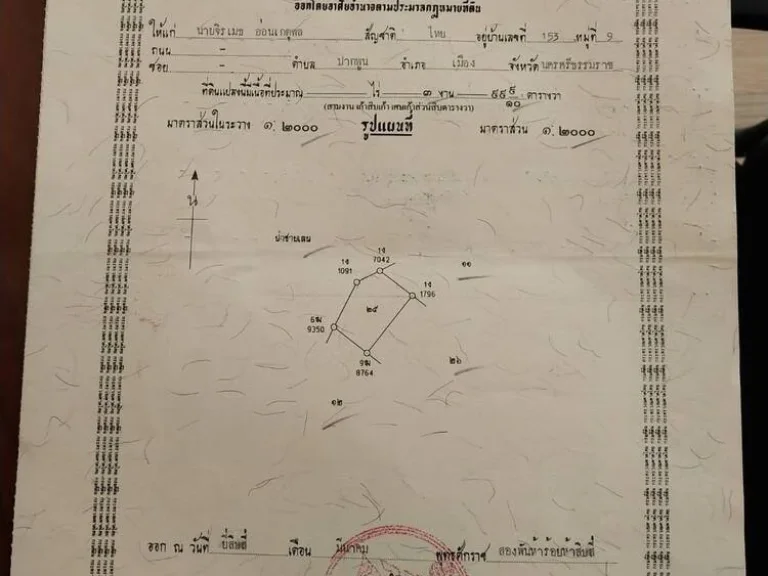 ออกโดยอาศัยอำนาจตามประมวลกฎหมายที่ดิน
ให้แก่ สัญชาติ ไทย อยู่บ้านเลขที่ 153 หมู่ที่ 9
ถนน -
ซอย - ตำบล ปากพูน อำเภอ เมือง จังหวัด นครศรีธรรมราช
ที่ดินแปลงนี้มีเนื้อที่ประมาณ - ไร่ ๓ งาน ๙๙ ๙/๑๐ ตารางวา
(สามงาน เก้าสิบเก้า เศษเก้าส่วนสิบตารางวา)
มาตราส่วนในระวาง ๑ : ๒๐๐๐ รูปแผนที่ มาตราส่วน ๑ : ๒๐๐๐
น
ป่าชายเลน
1ง 7042
1ง 1091
๑๑
1ง 1796
๒๕
9350
8764
๒๖
๑๒
ออก ณ วันที่ ยี่สิบสี่ เดือน มีนาคม พุทธศักราช สองพันห้าร้อยห้าสิบสี่